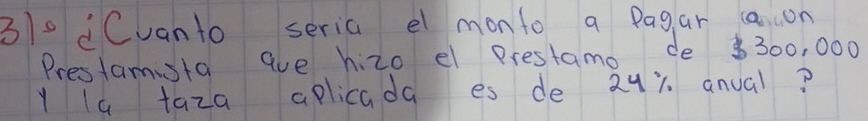 31° ¿Cuanto seria el monto a Pagar a un
Prestamista que hizo el Prestamo de $300,000
Y la taza aplicada es de 24% anual ?